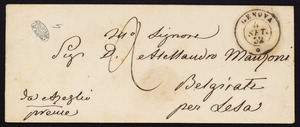 GENOVA
5
SET.
52
Al Signore
Sig. D. Alessandro Manzoni
Belgirate
per Lesa
da Azeglio
preme
2